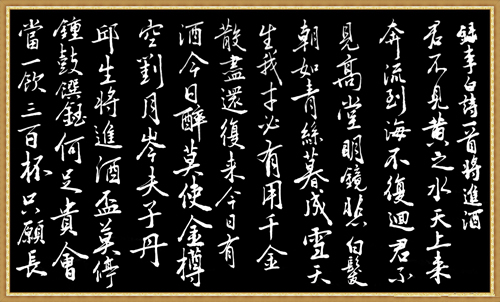 録李白詩一首將進酒
君不見黃之水天上来
奔流到海不復迴君不
見高堂明鏡悲白髮
朝如青絲暮成雪天
生我才必有用千金
散盡還復来今日有
酒今日醉莫使金樽
空對月岑夫子丹
邱生將進酒盃莫停
鍾鼓饌鈺何足貴會
當一飲三百杯只願長